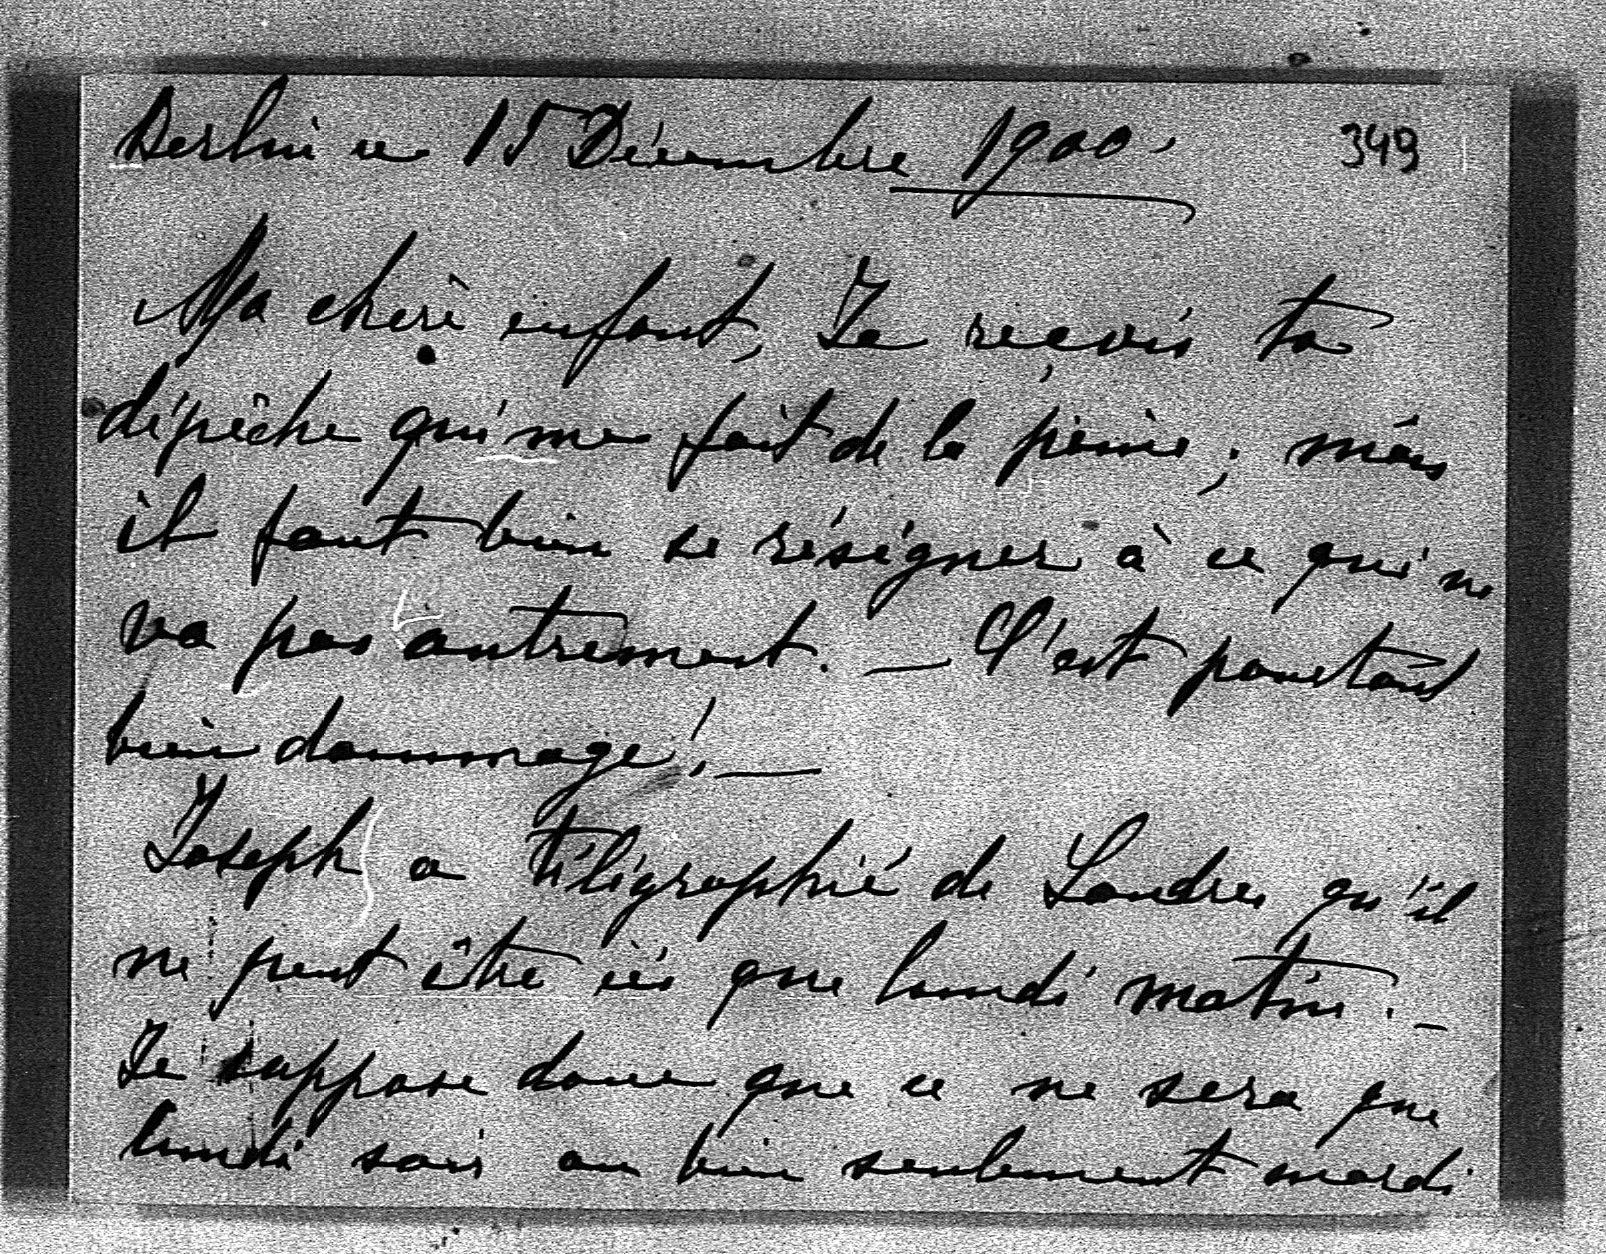 Berlin ce 15 Décembre 1900. 349
Ma chère enfant, Je reçois ta
dépêche qui me fait de la peine; mais
il faut bien se résigner à ce qui ne
va pas autrement. — C'est pourtant
bien dommage! —
Joseph a télégraphié de Londres qu'il
ne peut être ici que lundi matin. —
Je suppose donc que ce ne sera que
lundi soir ou bien seulement mardi